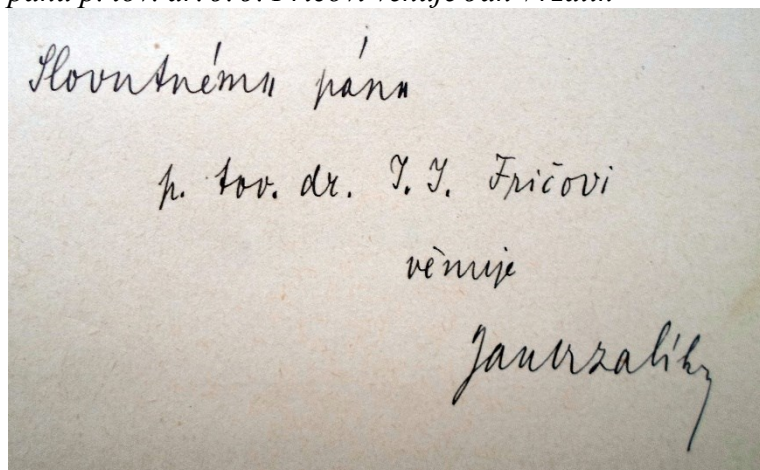 Slovutnému pánu
p. tov. dr. J. J. Fričovi
věnuje
Jan Vrzalík